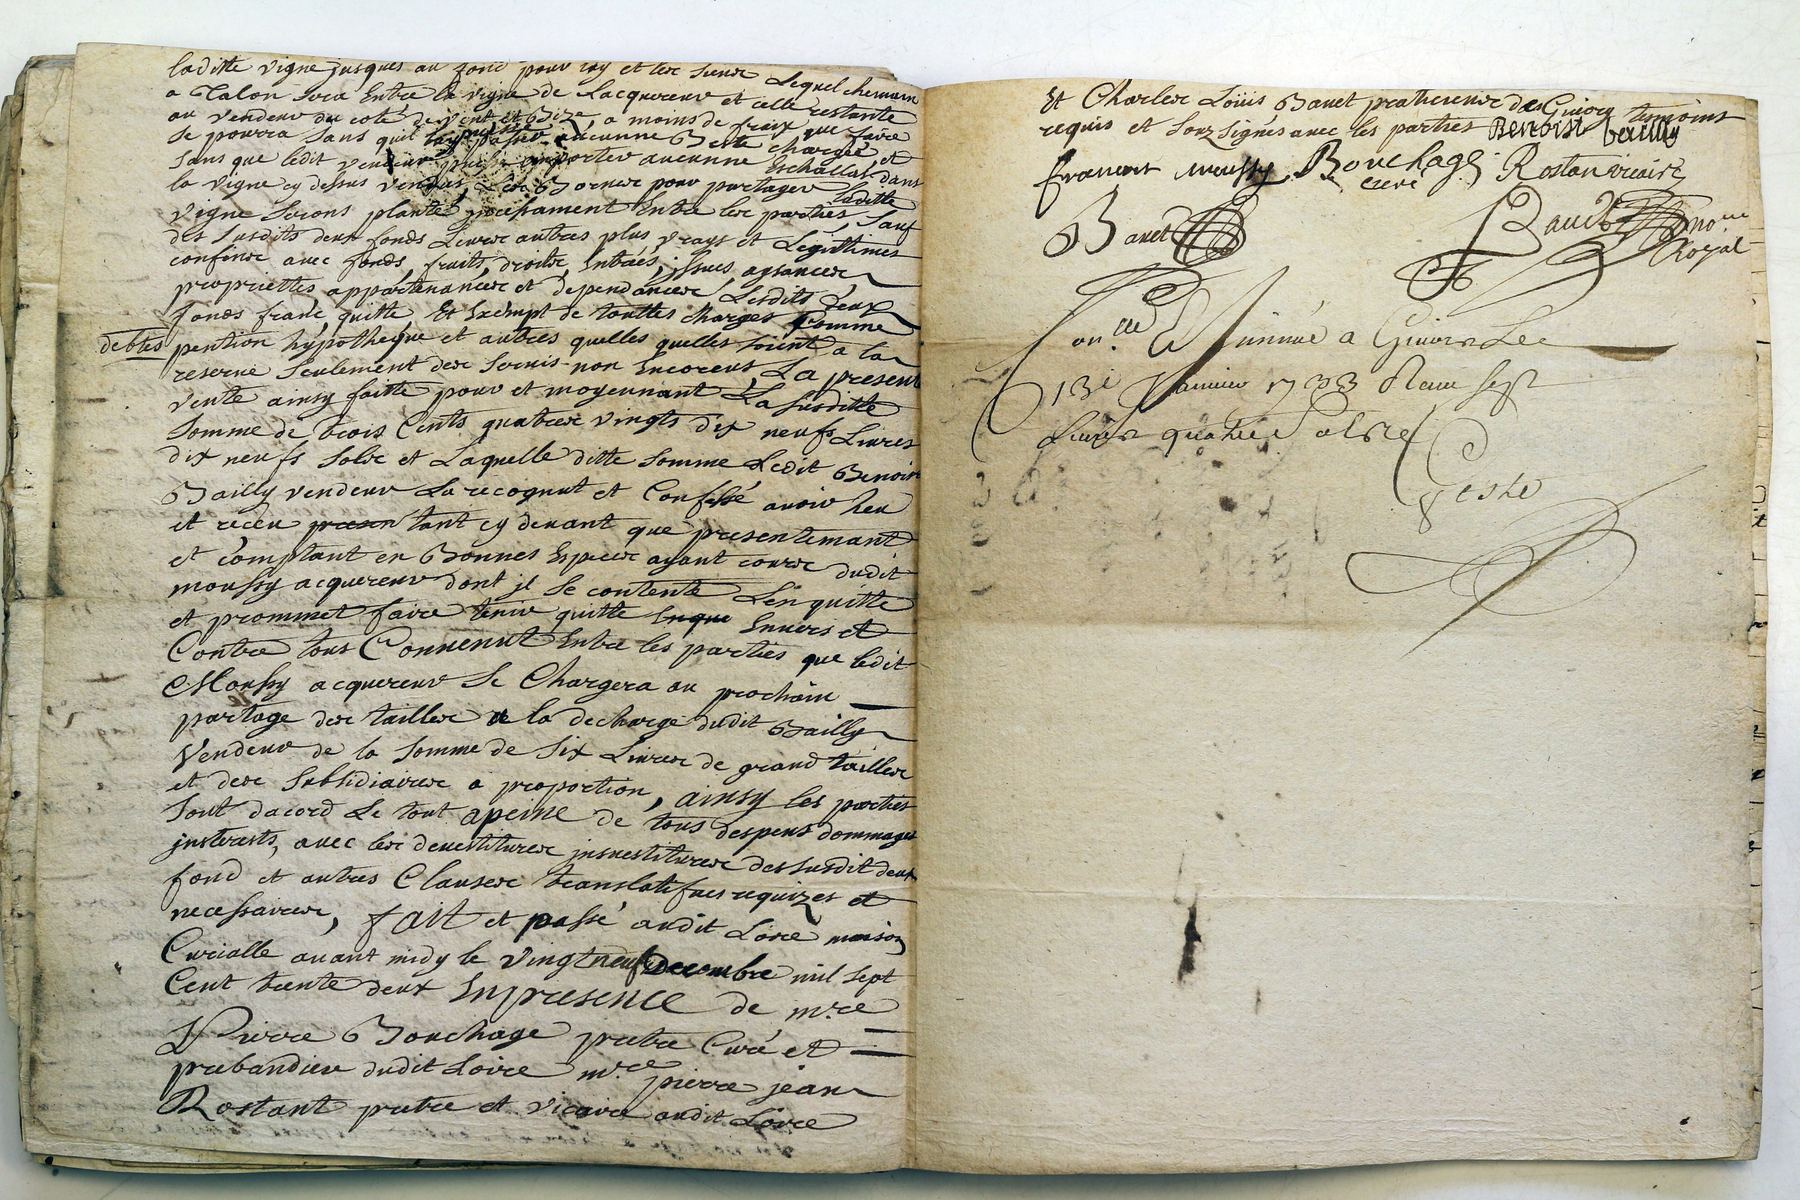 laditte vigne jusques au fond pour luy et les siens Lequel chemain
a Talon sera Entre la vigne de Lacquereur et celle restante
au vendeur du coté de vent et Bize, a moins de fraix que faire
se pourra sans quil puisse passer aucunne Beste chargée et
sans que ledit vendeur puisse emporter aucunne Eschallat dans
la vigne cy dessus vendue, Les Bornes pour partager laditte
vigne serons planté, incessament Entre les parties, sauf
des susdits deux fonds Leurs autres plus vrays et Legittimes
confins avec fonds, fruits, droits, Entrées, issues aysances
propriettes appartenances et dependances, Lesdits deux
fonds franc, quitte Et Exempt de touttes charges Comme
debtes pention hypotheque et autres quelles quelles soient a la
reserve seulement des servis non Encoreus La present
vente ainsy faitte pour et moyennant La susditte
somme de trois Cents quatres vingts dix neufs Livres
dix neufs sols et Laquelle ditte somme Ledit Benoist
Bailly vendeur La recognut et Confessé avoir heu
et receu presen tant cy devant que presentemant
et comptant en Bonnes Especes ayant cours dudit
moussy acquereur dont il se contente L'en quitte
et prommet faire tenir quitte Enque Envers et
Contre tous Convenut Entre les parties que ledit
Moussy acquereur se Chargera au prochain
partage des tailles a la decharge dudit Bailly
Vendeur de la somme de six Livres de grand tailles
et des subsidiaires a proportion, ainsy les parties
sont dacord Le tout apeine de tous despens dommages
insterests, avec les devestitures investitures des susdit deux
fond et autres Clauses translatifves requizes et
necessaires, fait et passé audit Loire maison
Curialle avant midy le vingtneuf Decembre mil sept
Cent trente deux Enpresence de m.re
Pierre Bouchage prebtre Curé et
prebandier dudit Loire m.re pierre jean
Rostant prebtre et vicaire audit Loire
Et Charles Loüis Banet praticiens de Givors temoins
requis et souzsignés avec les parties Benoist bailly
francois moussy Bouchage Rostan vicaire
curé
Banet Baudt no.re
Royal
Con.lle & insinué a Givors Le
13e Janvier 1733 Receu sept
Livres quatre sols
Teste